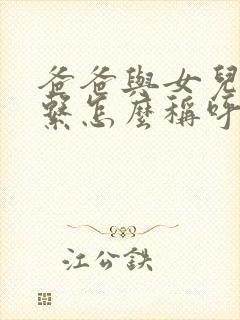 爸爸與女兒
繫怎麼稱呼
江公鉄